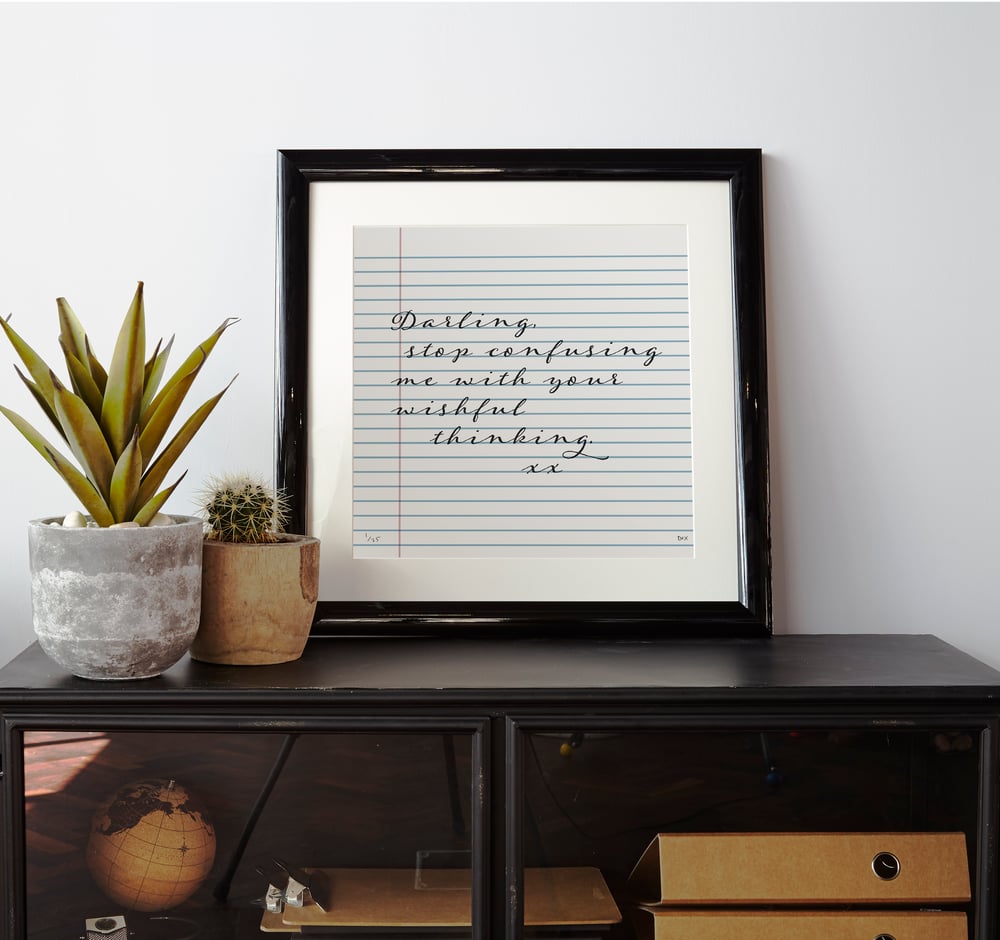 Darling,
stop confusing
me with your
wishful
thinking.
xx
1/25